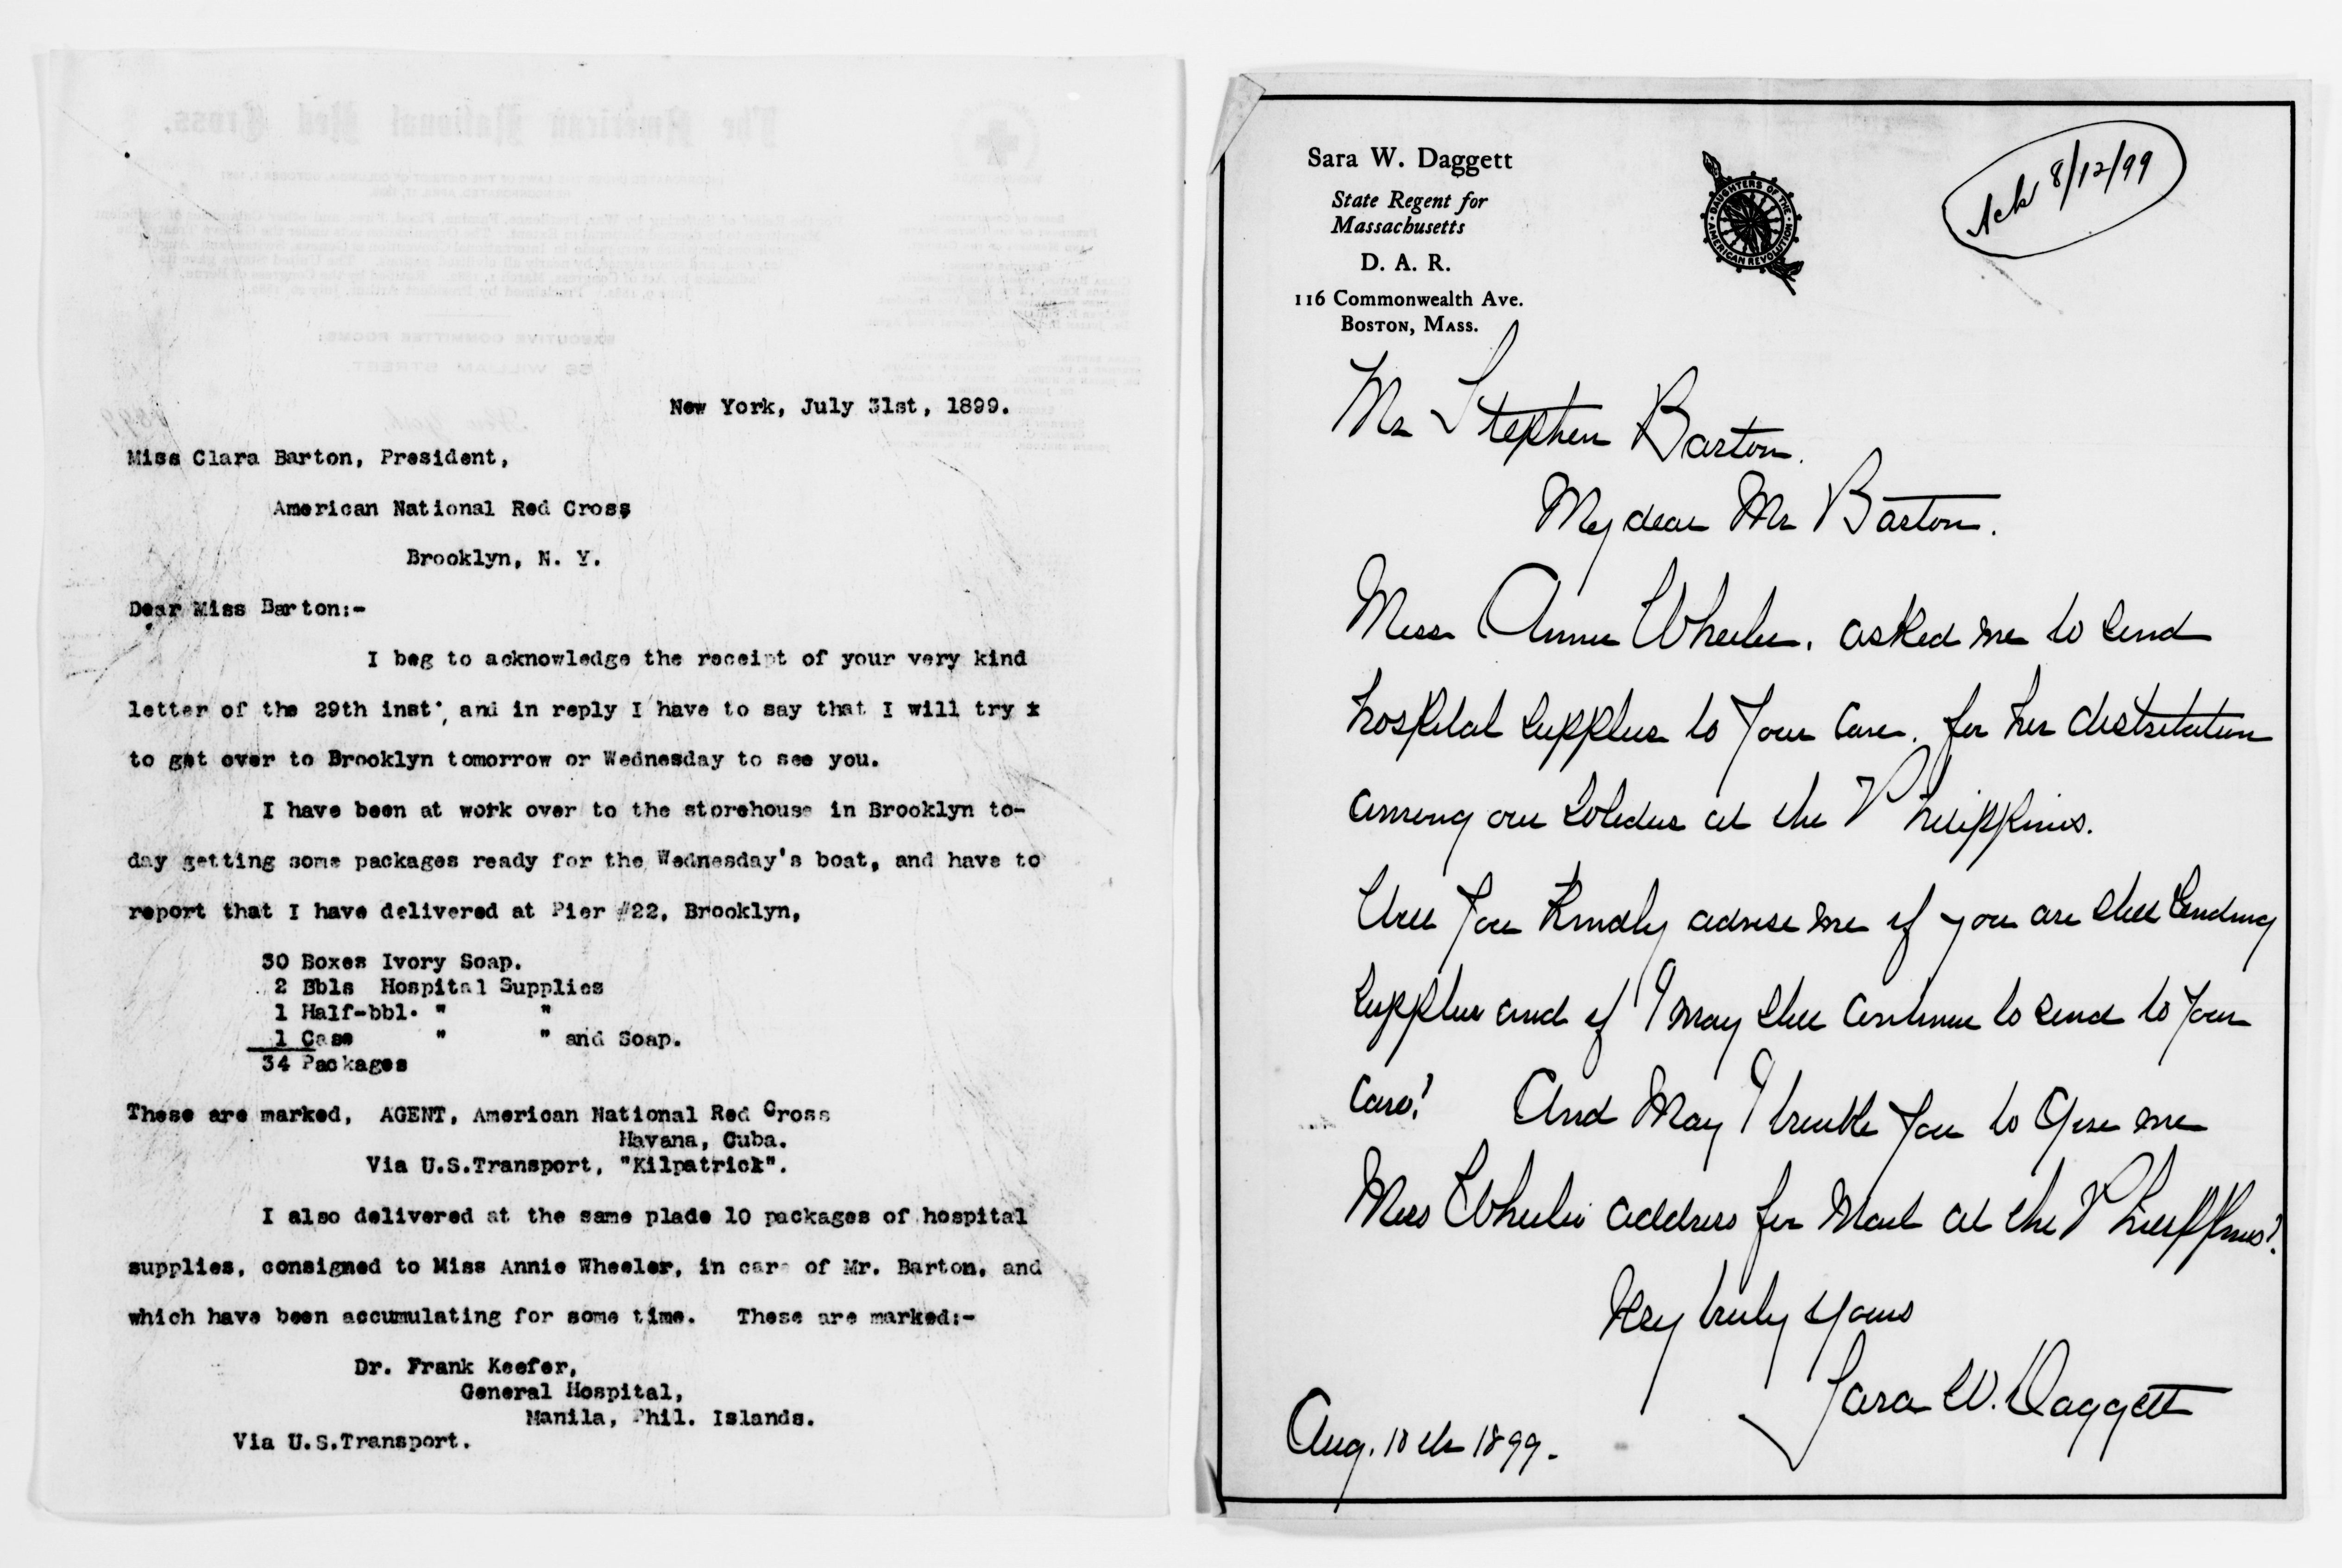 New York, July 31st, 1899.
Miss Clara Barton, President,
American National Red Cross
Brooklyn, N. Y.
Dear Miss Barton:-
I beg to acknowledge the receipt of your very kind
letter of the 29th inst', and in reply I have to say that I will try x
to get over to Brooklyn tomorrow or Wednesday to see you.
I have been at work over to the storehouse in Brooklyn to-
day getting some packages ready for the Wednesday's boat, and have to
report that I have delivered at Pier #22, Brooklyn,
30 Boxes Ivory Soap.
2 Bbls Hospital Supplies
1 Half-bbl. " "
1 Case " " and Soap.
34 Packages
These are marked, AGENT, American National Red Cross
Havana, Cuba.
Via U.S.Transport, "Kilpatrick".
I also delivered at the same plade 10 packages of hospital
supplies, consigned to Miss Annie Wheeler, in care of Mr. Barton, and
which have been accumulating for some time. These are marked:-
Dr. Frank Keefer,
General Hospital,
Manila, Phil. Islands.
Via U.S.Transport.
Sara W. Daggett
State Regent for
Massachusetts
D. A. R.
116 Commonwealth Ave.
Boston, Mass.
DAUGHTERS OF THE AMERICAN REVOLUTION
Ack 8/12/99
Mr Stephen Barton.
My dear Mr Barton.
Miss Annie Wheeler. asked me to send
hospital supplies to your care. for her distribution
among our soldiers at the Philippines.
Will you kindly advise me if you are still sending
supplies and if I may still continue to send to your
care? And may I trouble you to give me
Miss Wheeler address for mail at the Philippines?
Very truly yours
Sara W. Daggett
Aug. 10th 1899.